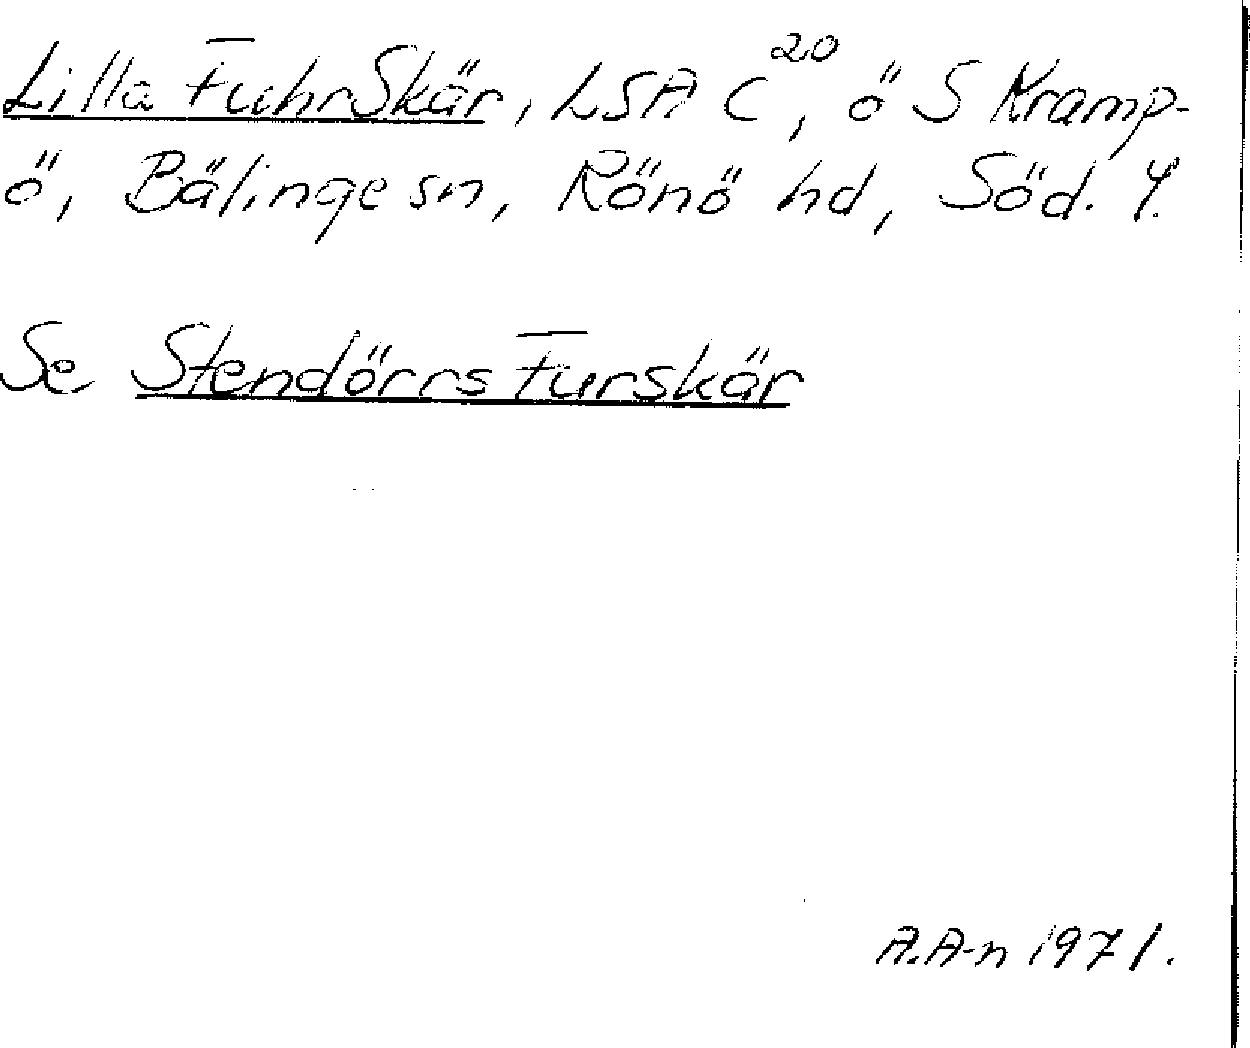 Lilla FuhrSkär, LSA C²⁰, ö S Kramp-
ö, Bälinge sn, Rönö hd, Söd. 4.
Se Stendörrs Furskär
A.A-n 1971.